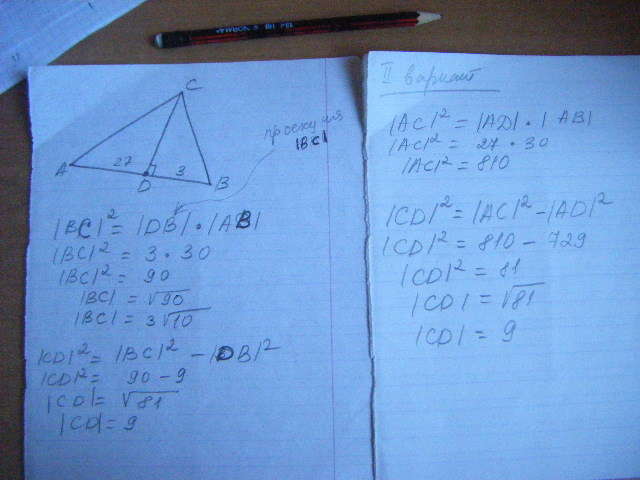 C
A
27
3
D
B
проекция
|BC|
|BC|² = |DB| · |AB|
|BC|² = 3 · 30
|BC|² = 90
|BC| = √90
|BC| = 3√10
|CD|² = |BC|² - |DB|²
|CD|² = 90 - 9
|CD| = √81
|CD| = 9
II вариант
|AC|² = |AD| · |AB|
|AC|² = 27 · 30
|AC|² = 810
|CD|² = |AC|² - |AD|²
|CD|² = 810 - 729
|CD|² = 81
|CD| = √81
|CD| = 9